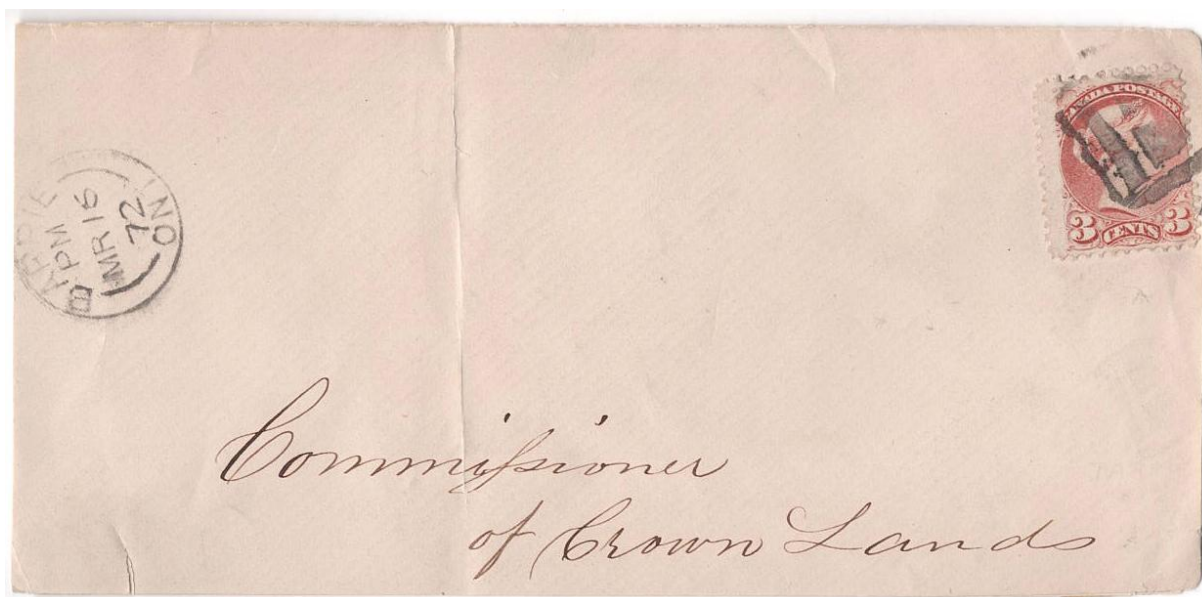 BARRIE
PM
MR 16
72
ONT
CANADA POSTAGE
3 CENTS 3
Commiſsioner
of Crown Lands